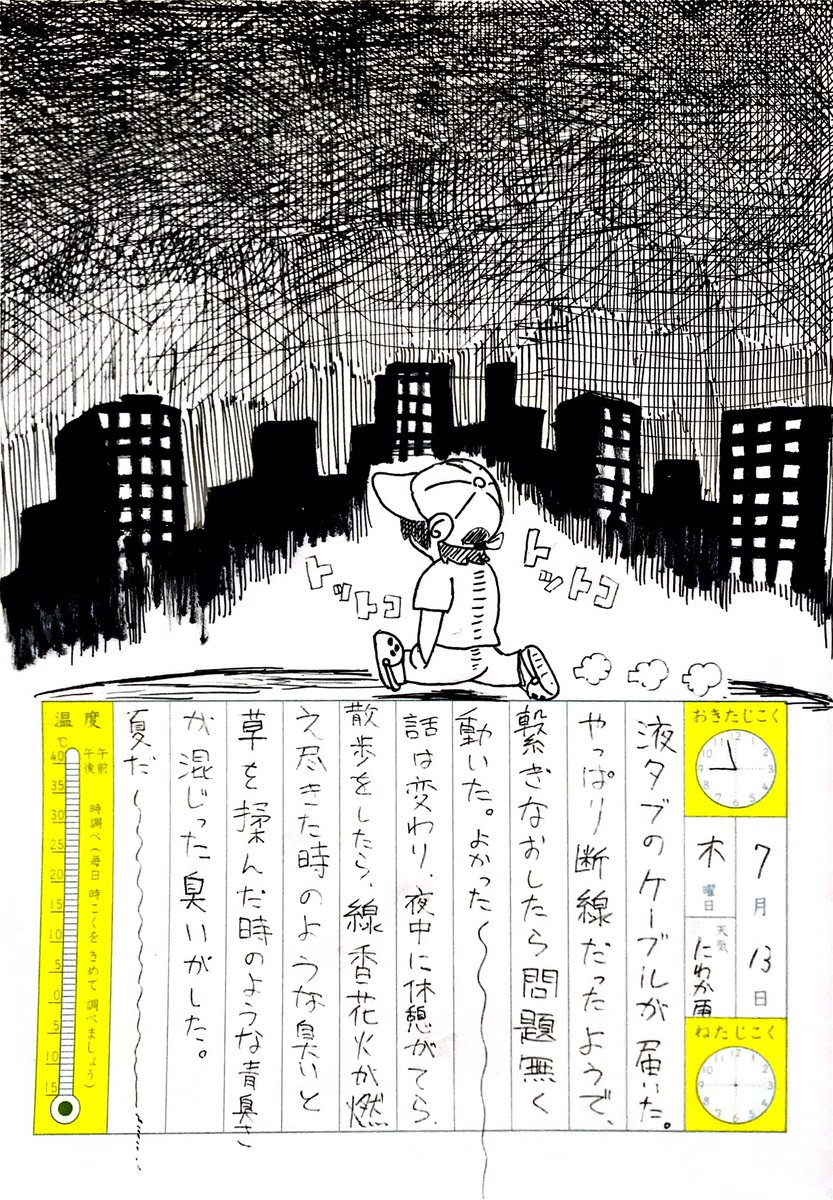 トットコ
トットコ
おきたじこく
7月13日
木曜日
天気
にわか雨
ねたじこく
液タブのケーブルが届いた。
やっぱり断線だったようで、
繋ぎなおしたら問題無く
動いた。よかった〜
話は変わり、夜中に休憩がてら
散歩をしたら、線香花火が燃
え尽きた時のような臭いと
草を揉んだ時のような青臭さ
が混じった臭いがした。
夏だ〜
温度
℃
午前
午後
時調べ(毎日 時こくを きめて 調べましょう)
40
35
30
25
20
15
10
5
0
5
10
15